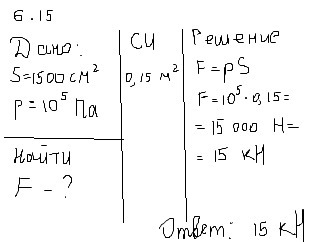 6.15
Дано:
S=1500 см²
p=10⁵ Па
Найти
F - ?
СИ
0,15 м²
Решение
F=pS
F=10⁵·0,15=
=15 000 Н=
=15 кН
Ответ: 15 кН